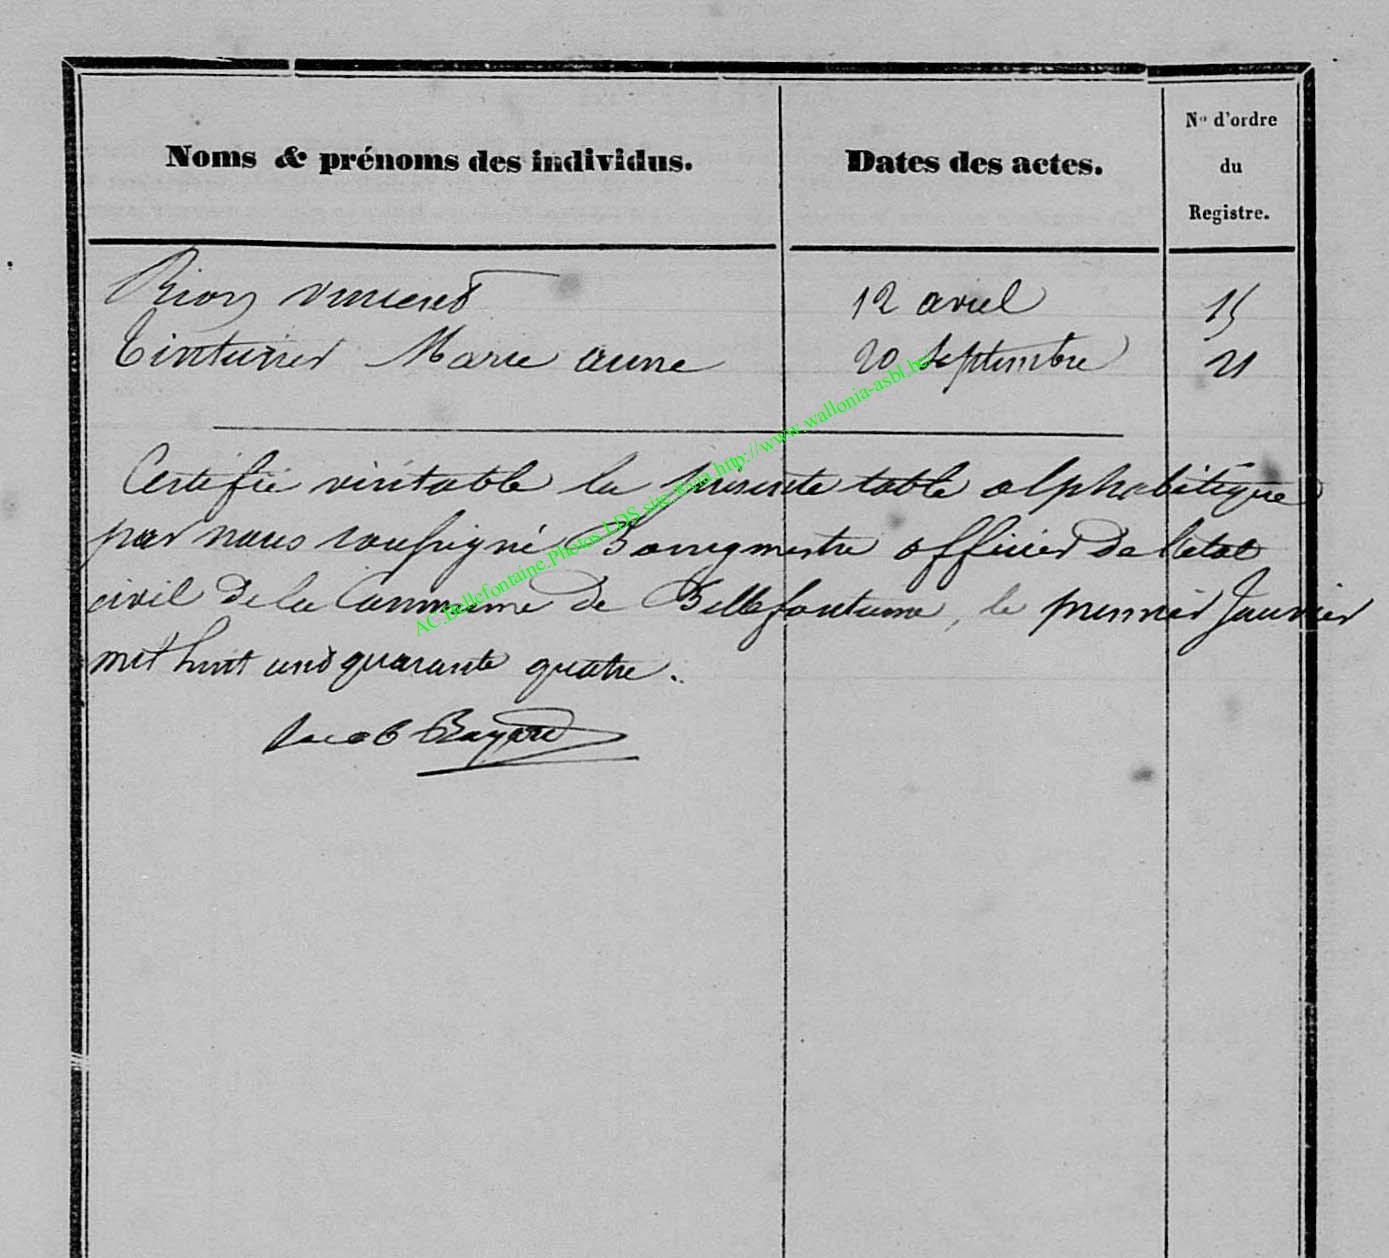 Noms & prénoms des individus. Dates des actes. No d'ordre du Registre.
Rion vincent 12 avril 15
Tinturier Marie anne 20 Septembre 21
Certifié véritable la présente table alphabétique
par nous soussigné Bourgmestre officier de l'etat
civil de la Commune de Bellefontaine, le premier Janvier
mil huit cent quarante quatre.
Jacob Bayard
AC.Bellefontaine.Photos LDS site http://www.wallonia-asbl.be/